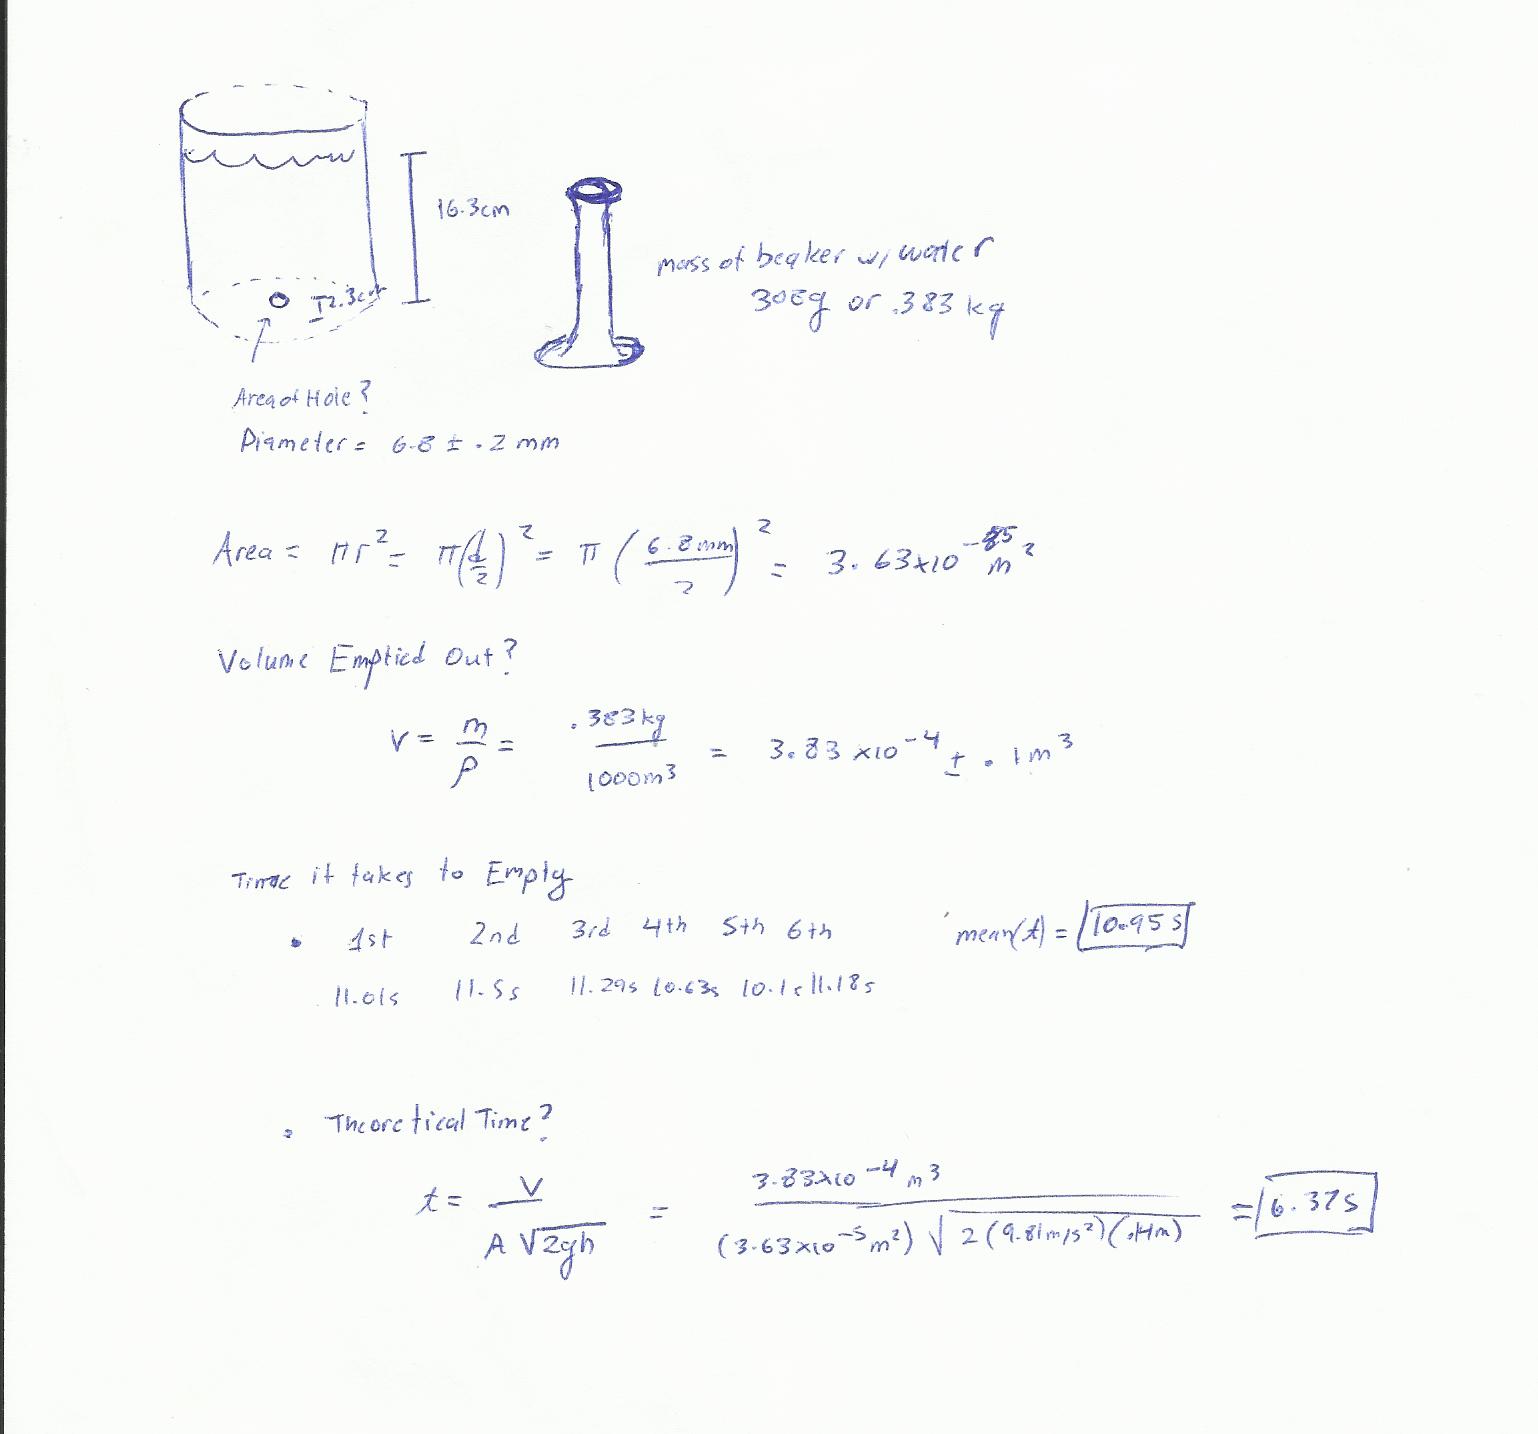 16.3cm
mass of beaker w/ water
g or .383 kg
2.3cm
Area of Hole?
Diameter = 6.8 ± .2 mm
Area = πr² = π(d/2)² = π(6.8mm/2)² = 3.63x10⁻⁵ m²
Volume Emptied Out?
V = m/ρ = .383kg/1000m³ = 3.83 x10⁻⁴ ± .1m³
Time it takes to Empty
• 1st 2nd 3rd 4th 5th 6th mean(t) = 10.95 s
11.01s 11.5s 11.29s 10.63s 10.1s 11.18s
• Theoretical Time?
t = V/(A√2gh) = 3.83x10⁻⁴ m³/((3.63x10⁻⁵m²)√2(9.81m/s²)(.14m)) = 6.37s